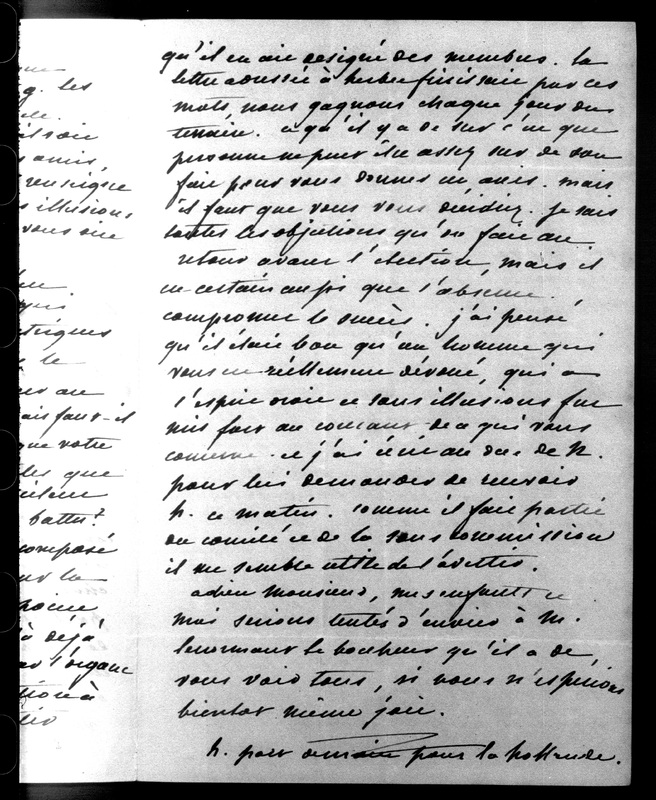 g. les
amis,
renseigne
s illusions
vous une
le
ais faut-il
que votre
les que
battu?
composé
ur la
à déjà
ar l'organe
qu'il en ait designé des membres. la
lettre adressée à finissait par ces
mots nous gagnons chaque jour du
terrain. ce qu'il y a de sur c'est que
personne ne peut être assez sur de son
fait pour vous donner un avis. mais
il faut que vous vous decidiez. je sais
toutes les objections qu'on fait au
retour avant l'élection, mais il
est certain aussi que l'absence
compromet le succès. j'ai pensé
qu'il était bon qu'un homme qui
vous est réellement dévoué, qui a
l'esprit droit et sans illusions fut
mis fort au courant de ce qui vous
concerne. et j'ai écrit au duc de N.
pour lui demander de recevoir
h. ce matin. comme il fait partie
du comité et de la sous commission
il me semble utile de l'avertir.
adieu Monsieur, mes enfants et
moi serions tentés d'envier à M.
lenormant le bonheur qu'il a de
vous voir tous, si nous n'espérions
bientot même joie.
h. part demain pour la hollande.